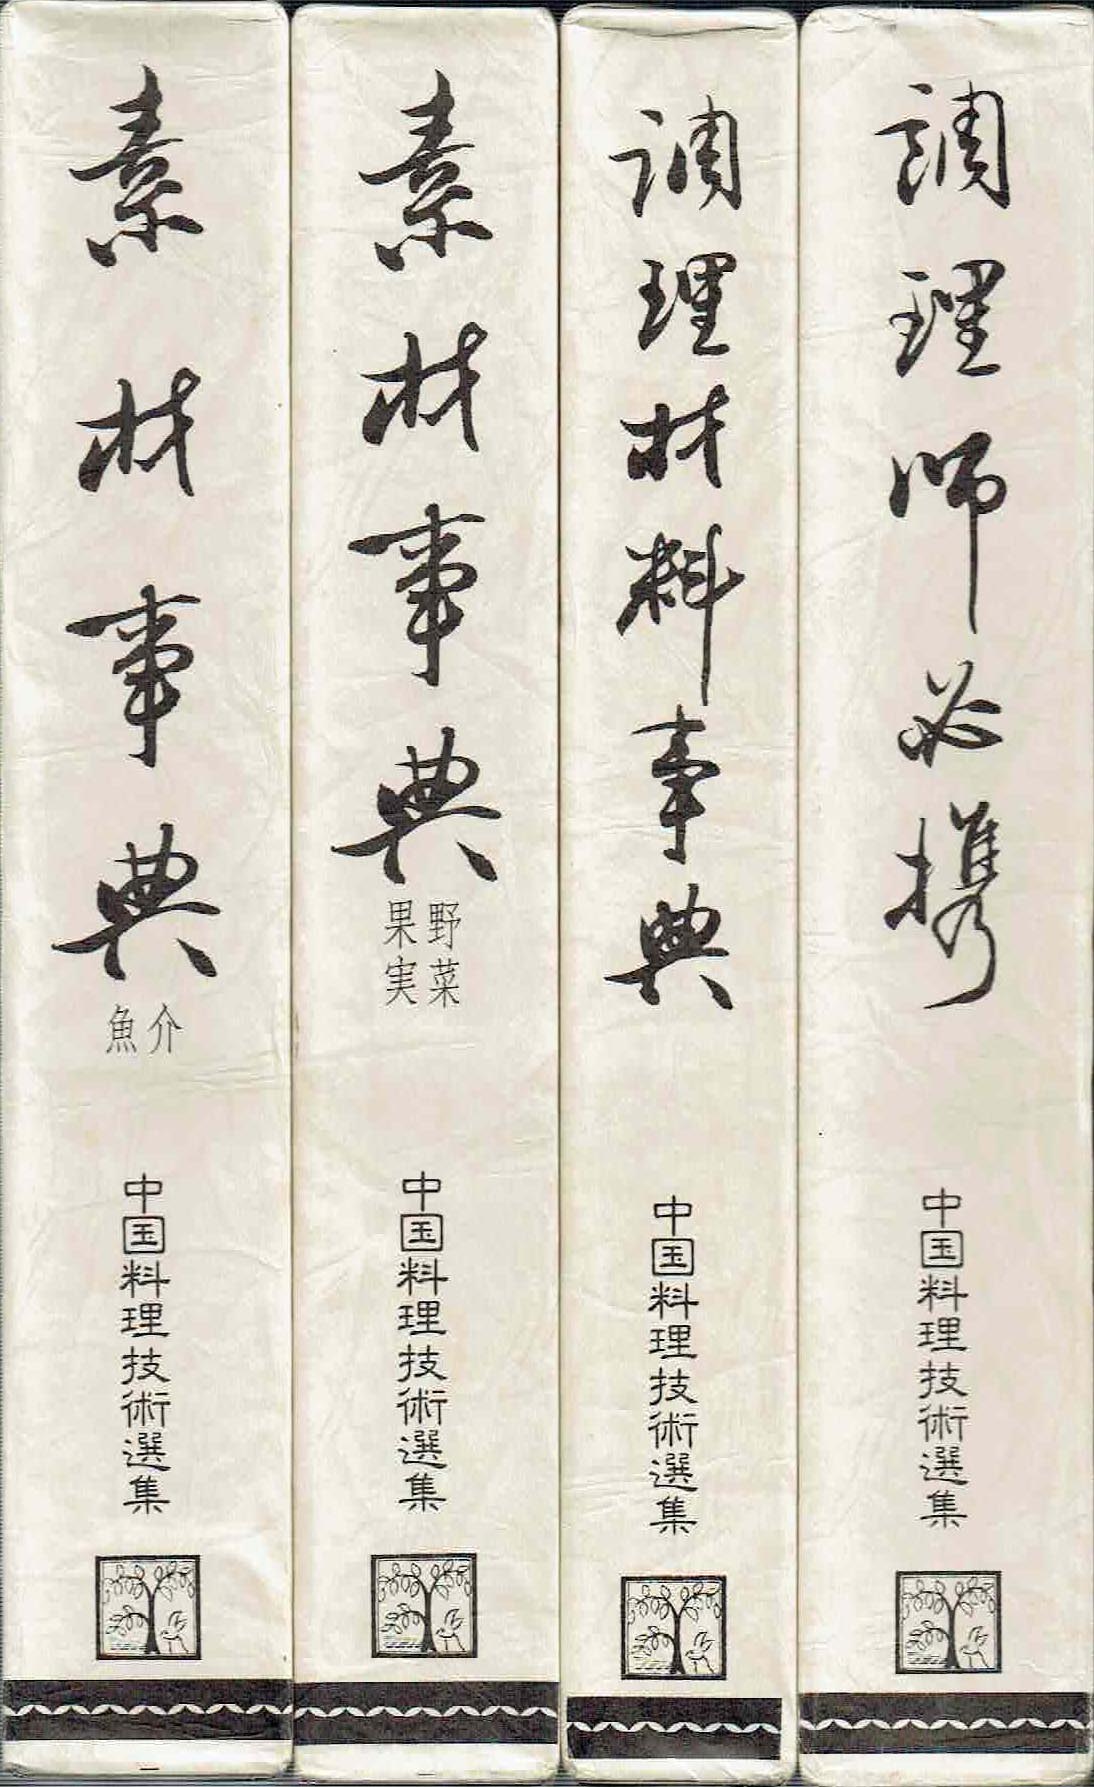 素材事典
魚介
中国料理技術選集
素材事典
野菜
果実
中国料理技術選集
調理材料事典
中国料理技術選集
調理師必携
中国料理技術選集